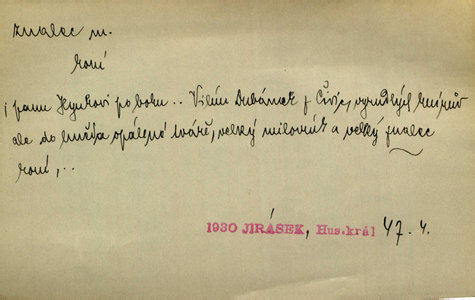 znalec m.
koní
i panu Hynkovi po boku .. Vilém Dubánek z Čivic, vyrudlých knírů
ale do hněda opálené tváře, velký milovník a velký znalec
koní, ..
1930 JIRÁSEK, Hus.král 47. 4.